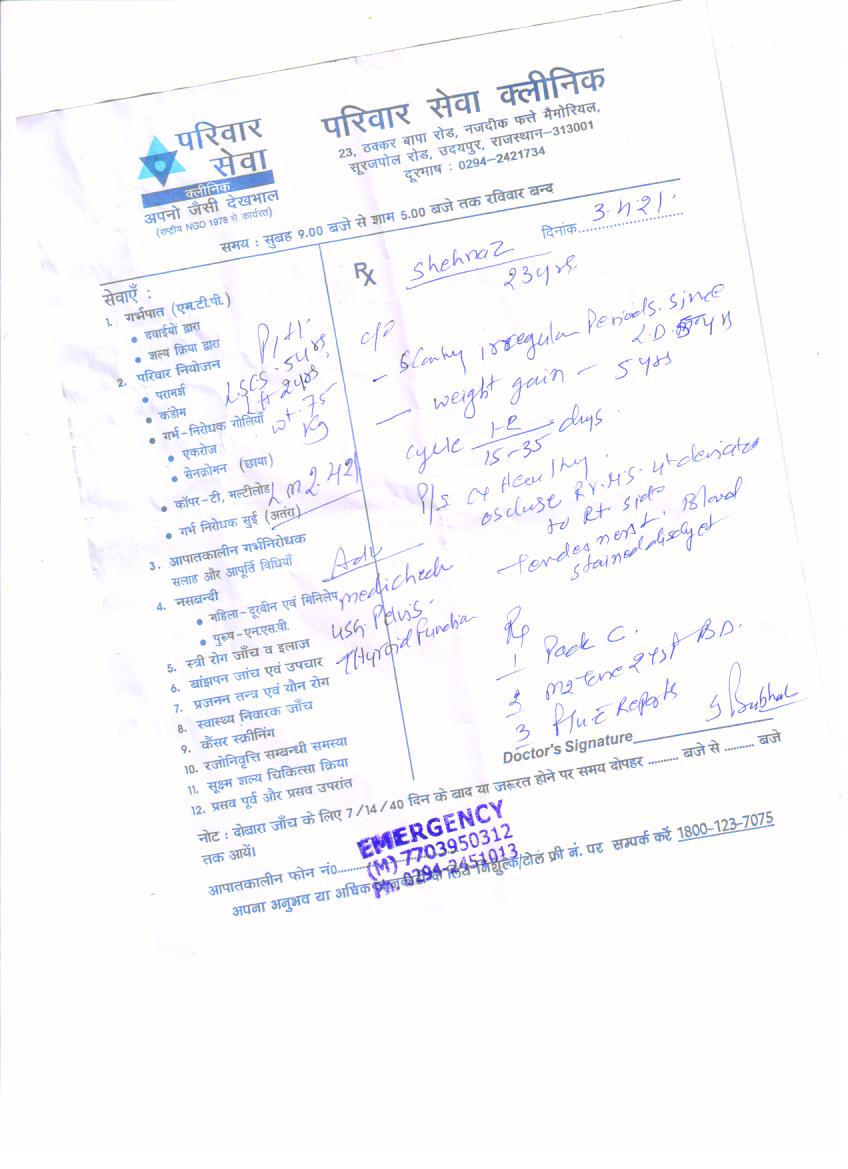 परिवार
सेवा
क्लीनिक
अपनो जैसी देखभाल
(राष्ट्रीय NGO 1978 से कार्यरत)
परिवार सेवा क्लीनिक
23, ठक्कर बापा रोड, नजदीक फत्ते मैमोरियल,
सूरजपोल रोड, उदयपुर, राजस्थान-313001
दूरभाष : 0294-2421734
समय : सुबह 9.00 बजे से शाम 5.00 बजे तक रविवार बन्द
दिनांक 3.4.21.
सेवाएँ :
1. गर्भपात (एम.टी.पी.)
• दवाईयों द्वारा
• शल्य क्रिया द्वारा
2. परिवार नियोजन
• परामर्श
• कंडोम
• गर्भ-निरोधक गोलियाँ
• एकरोज
• सेनक्रोमन (छाया)
• कॉपर-टी, मल्टीलोड
• गर्भ निरोधक सुई (अतंरा)
3. आपातकालीन गर्भनिरोधक
सलाह और आपूर्ति विधियाँ
4. नसबन्दी
• महिला-दूरबीन एवं मिनिलेप
• पुरूष-एन.एस.वी.
5. स्त्री रोग जाँच व इलाज
6. बांझपन जांच एवं उपचार
7. प्रजनन तन्त्र एवं यौन रोग
8. स्वास्थ्य निवारक जाँच
9. कैंसर स्क्रीनिंग
10. रजोनिवृत्ति सम्बन्धी समस्या
11. सूक्ष्म शल्य चिकित्सा क्रिया
12. प्रसव पूर्व और प्रसव उपरांत
LSCS. 5yrs,
2yrs
wt. 75
kg
Adv
medicheck
USG Pelvis.
Thyroid Function
Rx
Shehnaz
23yrs.
c/o
- Scanty irregular Periods. Since
L.D. 5yrs
- weight gain - 5 yrs
cycle 15-35 days.
P/S Cx Healthy.
deviated
to Rt side
tenderness+. Blood
stained
Rx
1 Pack C.
2 BD.
3 Reports
Doctor's Signature
नोट : दोबारा जाँच के लिए 7/14/40 दिन के बाद या जरूरत होने पर समय दोपहर .......... बजे से .......... बजे
तक आयें।
आपातकालीन फोन नं0
EMERGENCY
(M) 7703950312
Ph. 0294-2451013
अपना अनुभव या अधिक के लिये निशुल्क/टोल फ्री नं. पर सम्पर्क करें 1800-123-7075